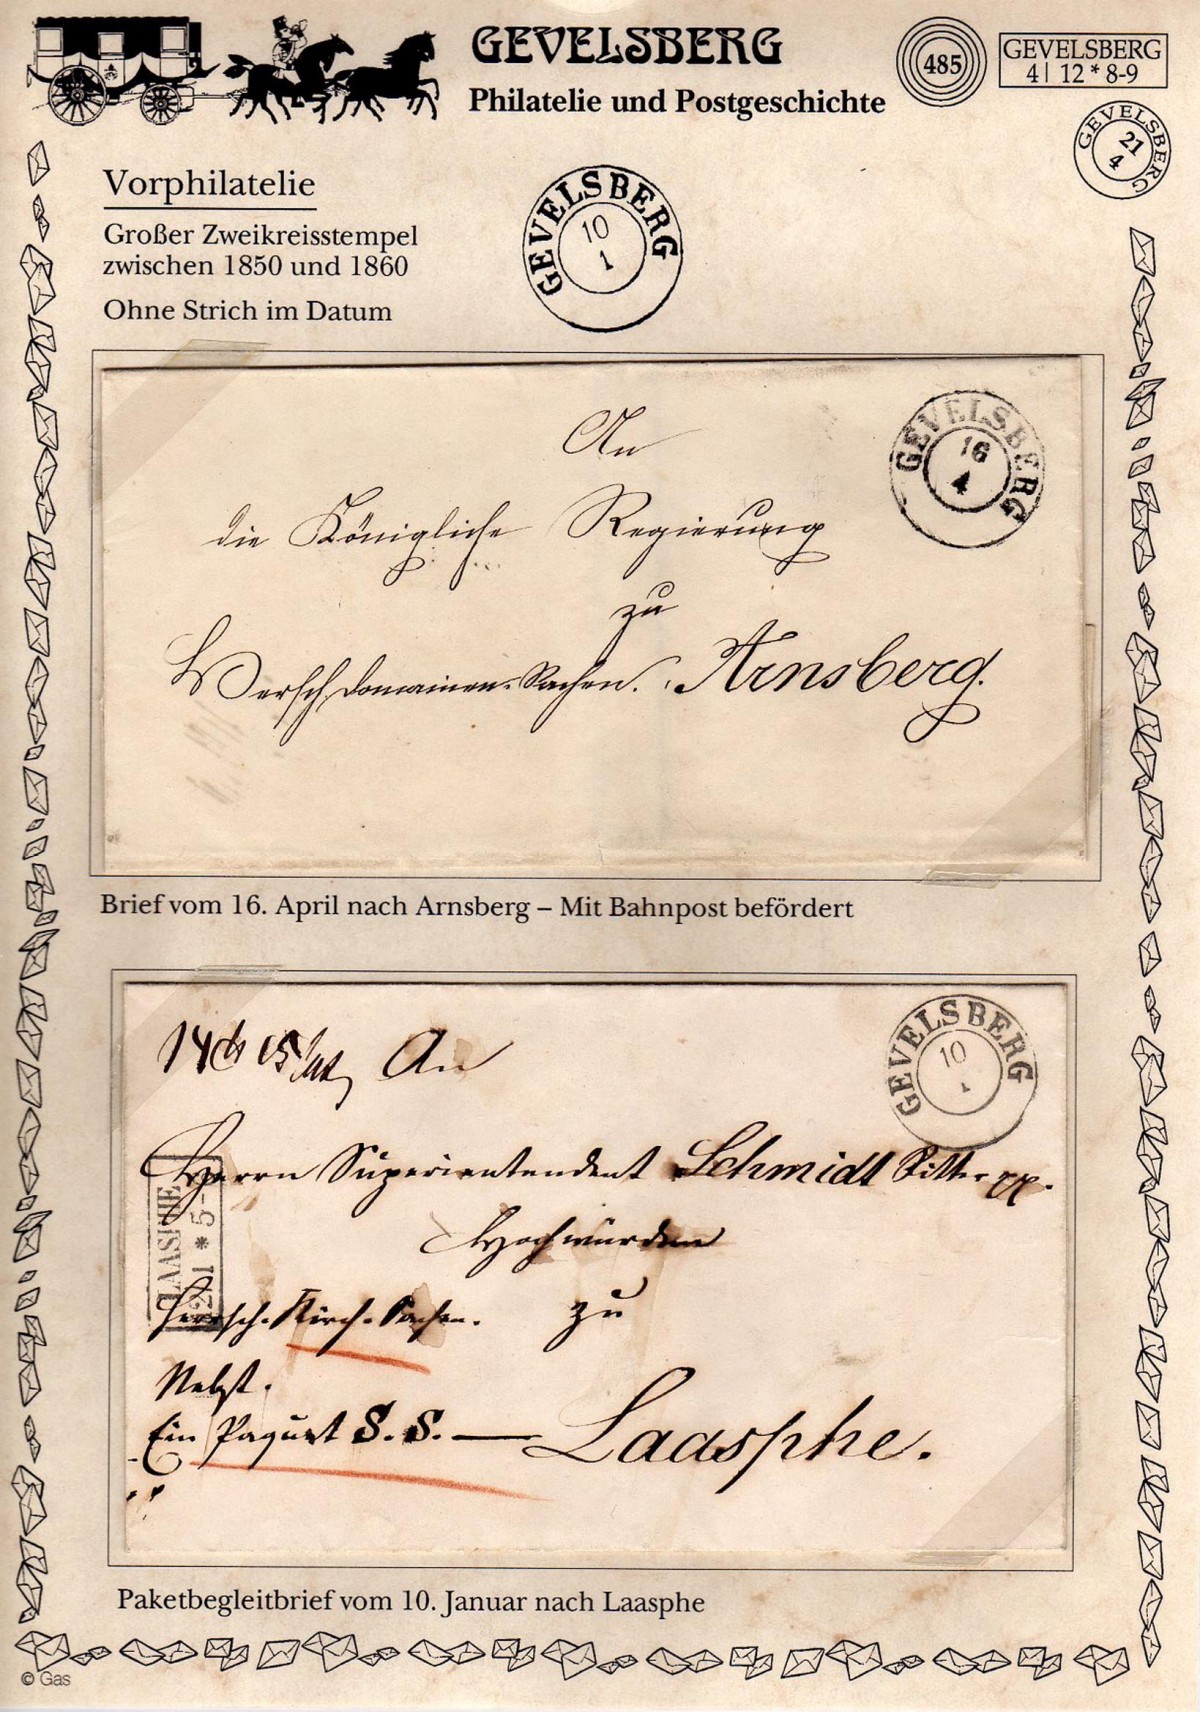 GEVELSBERG
Philatelie und Postgeschichte
485
GEVELSBERG
4| 12 * 8-9
GEVELSBERG
21
4
Vorphilatelie
Großer Zweikreisstempel
zwischen 1850 und 1860
Ohne Strich im Datum
GEVELSBERG
10
1
An
GEVELSBERG
16
4
die Königliche Regierung
zu
Herrsch. Domainen-Sachen. Arnsberg.
Brief vom 16. April nach Arnsberg – Mit Bahnpost befördert
An
GEVELSBERG
10
1
Herrn Superientendent Schmidt Ritter pp.
Hochwürden
LAASPHE
Herrsch. Kirch. Sachen. zu
Nebst.
Ein Paquet S. S. — Laasphe.
Paketbegleitbrief vom 10. Januar nach Laasphe
© Gas